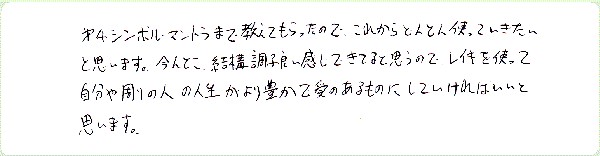 第4.シンボル・マントラまで教えてもらったので、これからどんどん使っていきたい
と思います。今んとこ、結構調子良い感じできてると思うので レイキを使って
自分や周りの人 の人生 がより豊かで愛のあるものに していければいいと
思います。